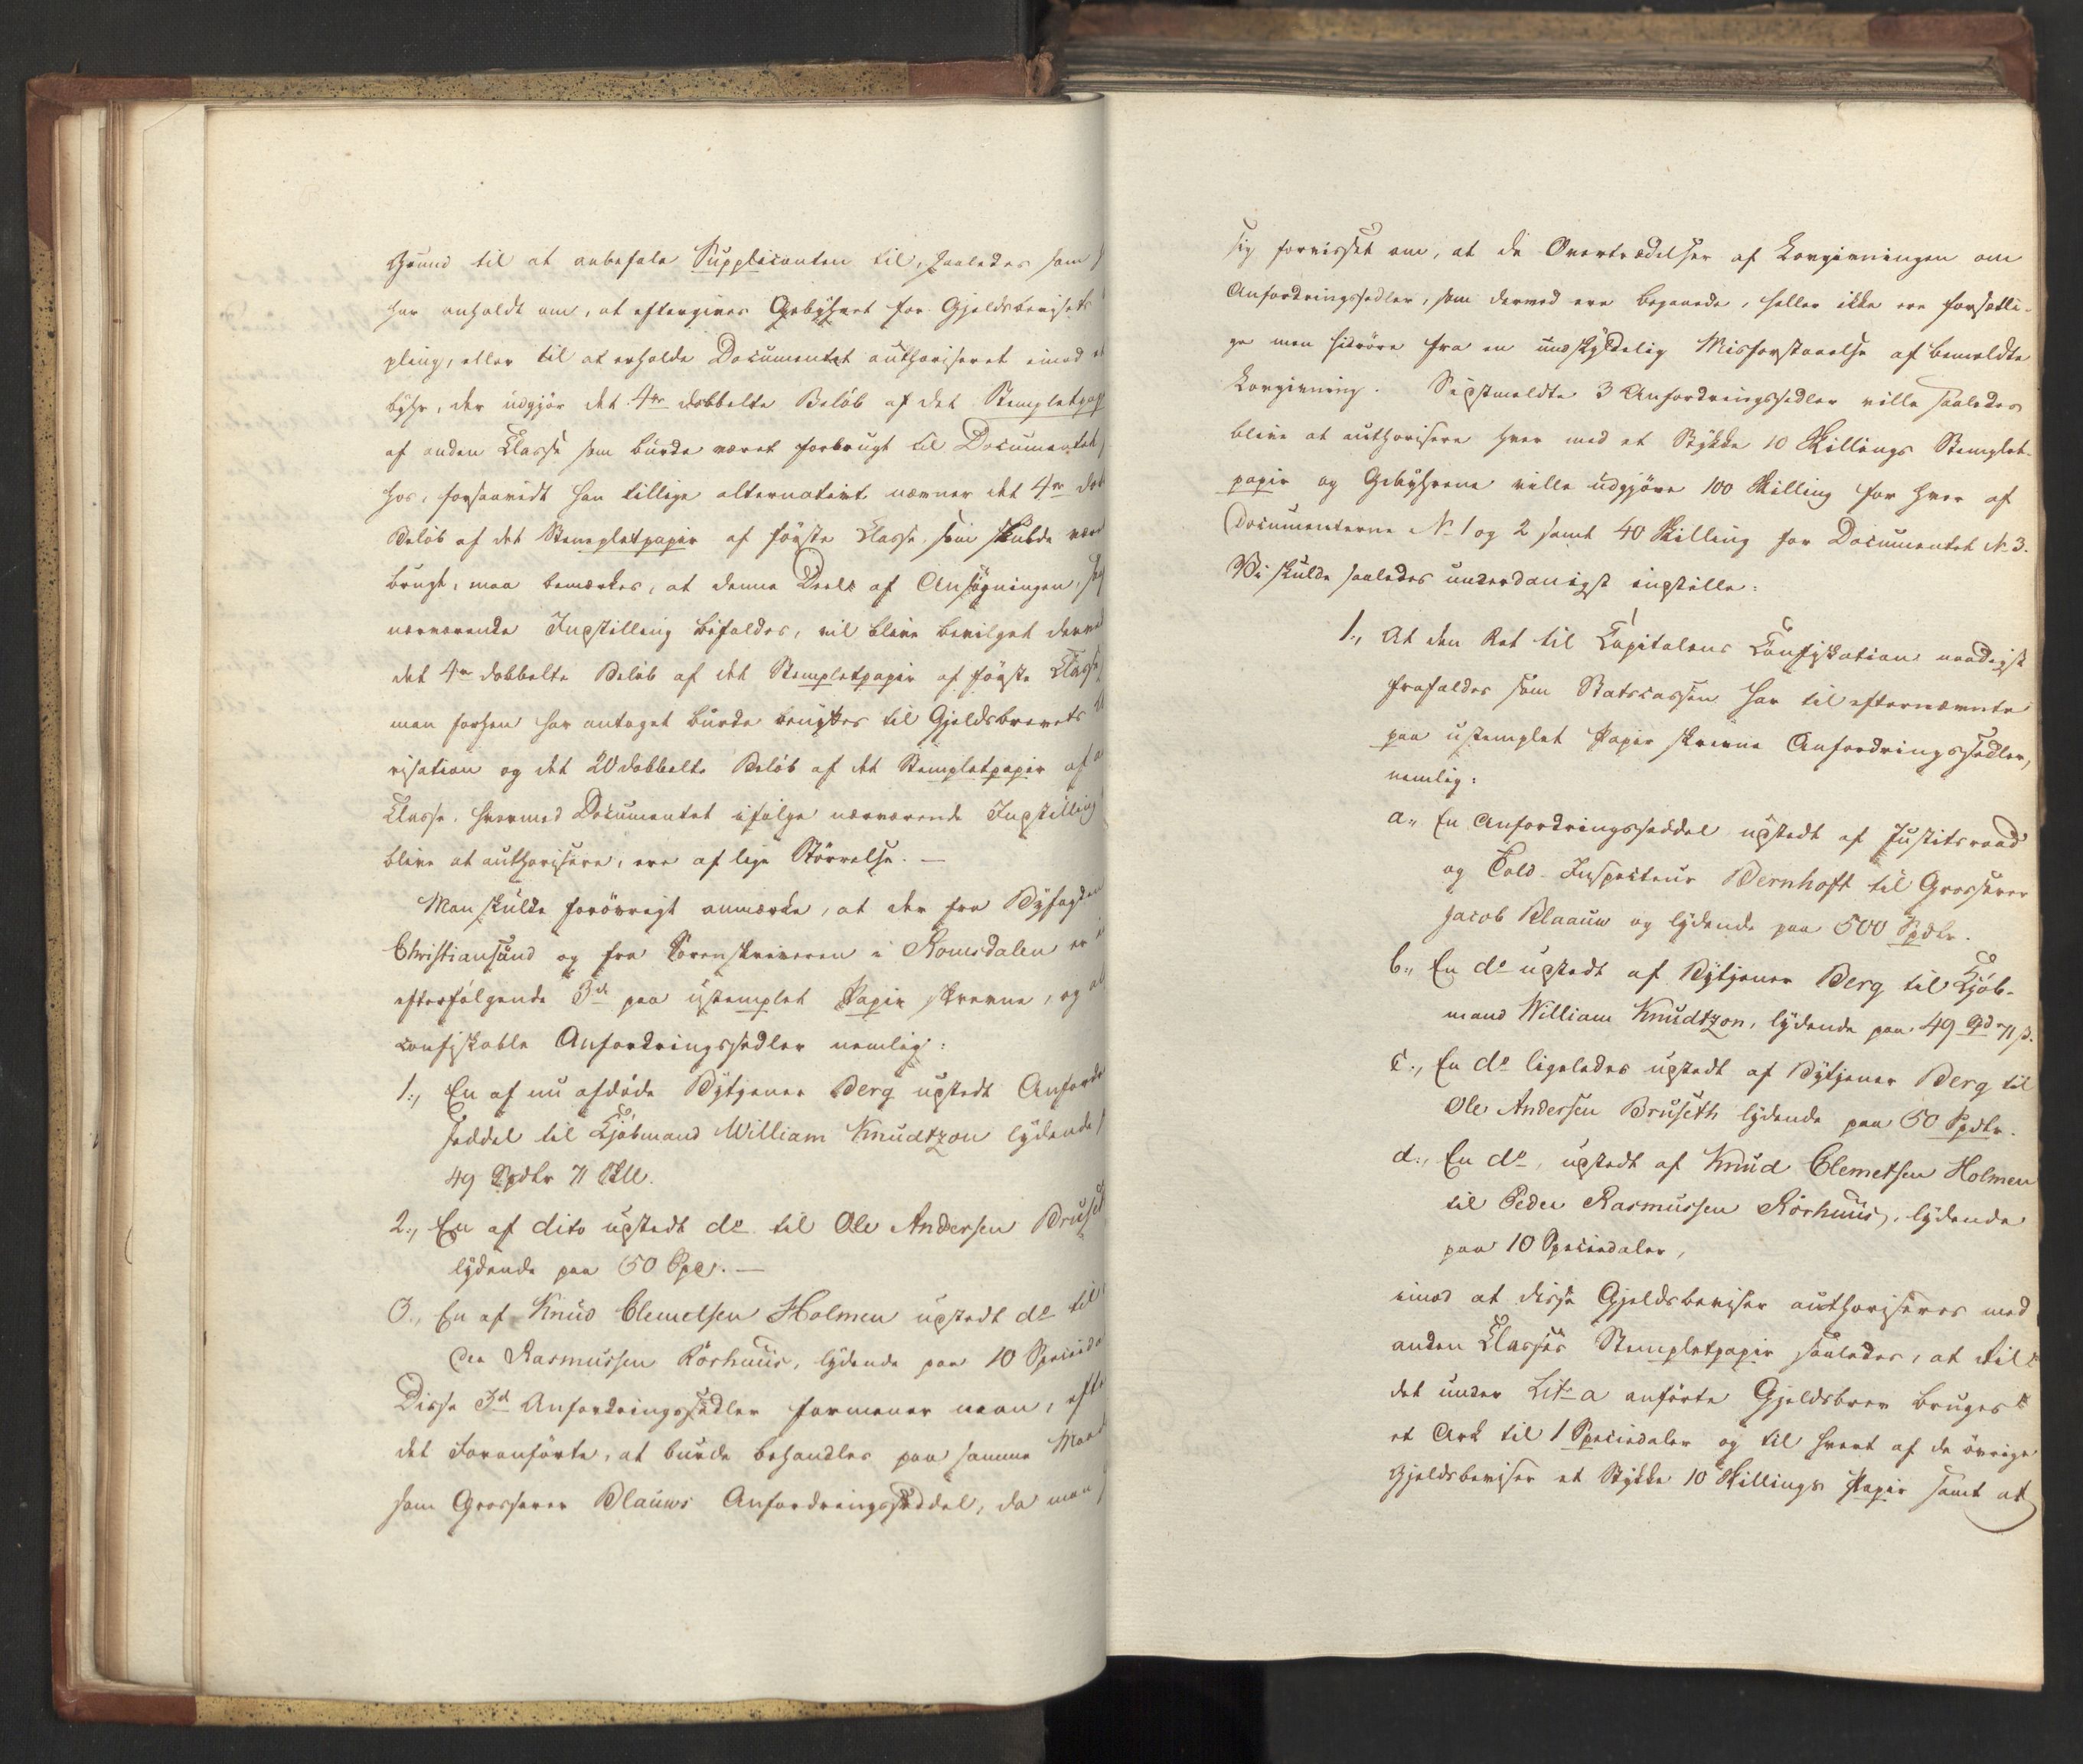 Grund til at anbefale Supplicanten til, saaledes som
har anholdt om, at eftergives Gebyhret for Gjeldsbevisets
pling, eller til at erholde Documentet authoriseret imod et
byhr, der udgjør det 4re dobbelte Beløb af det Stempletpap
af anden Classe som burde været forbrugt til Documentet,
hos, forsaavidt han tillige alternativt nævner det 4re dob
Beløb af det Stempletpapir af første Classe, som skulde være
brugt, maa bemærkes, at denne Deel af Ansøgningen,
nærværende Indstilling bifaldes, vil blive bevilget derved
det 4re dobbelte Beløb af det Stempletpapir af første Classe,
man forhen har antaget burde benyttes til Gjeldsbrevets
risation og det 20 dobbelte Beløb af det Stempletpapir af a
Classe, hvormed Documentet ifølge nærværende Indstilling
blive at authorisere, ere af lige Størrelse. —
Man skulde forøvrigt anmærke, at der fra Byfogden
Christiansund og fra Sorenskriveren i Romsdalen er
efterfølgende 3de paa ustemplet Papir skrevne, og al
confiskable Anfordringssedler nemlig:
1., En af nu afdøde Bytjener Berg udstedt Anfordr
seddel til Kjøbmand William Knudtzon lydende
49 Spdlr 71 Skll.
2., En af dito udstedt do til Ole Andersen Bruset
lydende paa 50 Spe. —
3., En af Knud Clemetsen Holmen udstedt do til
der Rasmussen Rørhuus, lydende paa 10 Specieda
Disse 3de Anfordringssedler formener man, efte
det Foranførte, at burde behandles paa samme Maad
som Grosserer Blauws Anfordringsseddel, da man
sig forvisset om, at de Overtrædelser af Lovgivningen om
Anfordringssedler, som dermed ere begaaede, heller ikke ere forsætli-
ge men hidrøre fra en undskyldelig Misforstaaelse af bemeldte
Lovgivning. Sidstmeldte 3 Anfordringssedler ville saaledes
blive at authorisere hver med et Stykke 10 Skillings Stemplet-
papir og Gebyhrene ville udgjøre 100 Skilling for hver af
Documenterne No 1 og 2 samt 40 Skilling for Documentet No 3.
Vi skulde saaledes underdanigst indstille:
1., At den Ret til Capitalens Confiskation naadigst
frafaldes som Statscassen har til efternævnte
paa ustemplet Papir skrevne Anfordringssedler,
nemlig:
a., En Anfordringsseddel udstedt af Justitsraad
og Told-Inspecteur Bernhoft til Grosserer
Jacob Blaauw og lydende paa 500 Spdlr.
b., En do udstedt af Bytjener Berg til Kjøb-
mand William Knudtzon, lydende paa 49 Spd 71 ß.
c., En do ligeledes udstedt af Bytjener Berg til
Ole Andersen Bruseth lydende paa 50 Spdlr.
d., En do, udstedt af Knud Clemetsen Holmen
til Peder Rasmussen Rørhuus, lydende
paa 10 Speciedaler,
imod at disse Gjeldsbeviser authoriseres med
anden Classes Stempletpapir saaledes, at til
det under Litr a anførte Gjeldsbrev bruges
et Ark til 1 Speciedaler og til hvert af de øvrige
Gjeldsbeviser et Stykke 10 Skillings Papir samt at